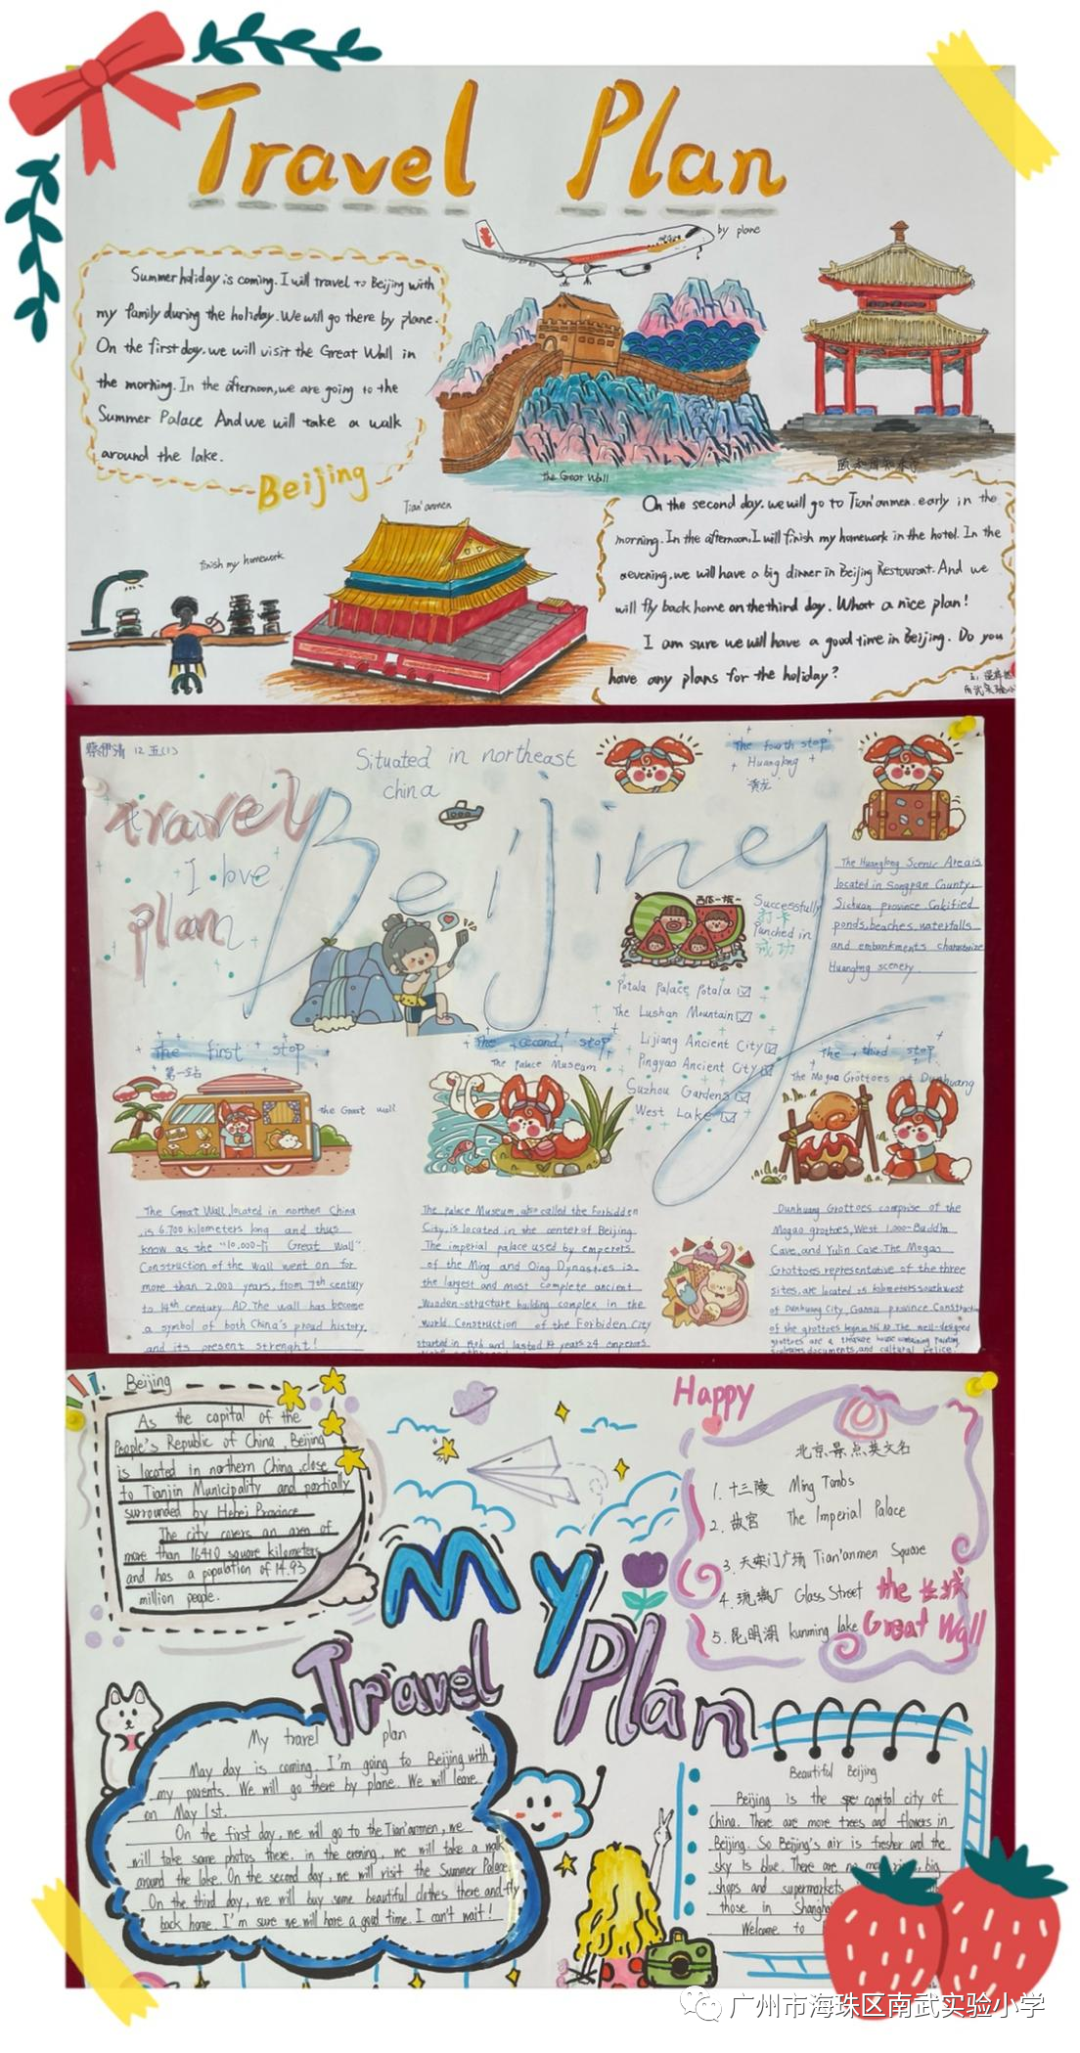 Travel Plan
by plane
Summer holiday is coming. I will travel to Beijing with
my family during the holiday. We will go there by plane.
On the first day, we will visit the Great Wall in
the morning. In the afternoon, we are going to the
Summer Palace And we will take a walk
around the lake.
Beijing
the Great Wall
Tian'anmen
finish my homework
On the second day, we will go to Tian'anmen early in the
morning. In the afternoon, I will finish my homework in the hotel. In the
evening, we will have a big dinner in Beijing Restaurant. And we
will fly back home on the third day. What a nice plan!
I am sure we will have a good time in Beijing. Do you
have any plans for the holiday?
Situated in northeast
china
travel
I love
plan
Beijing
The fourth stop
Huanglong
黄龙
The Huanglong Scenic Area is
located in Songpan County,
Sichuan province Calcified
ponds, beaches, waterfalls
and embankments characterize
Huanglong scenery
Successfully
打卡
Punched in
成功
Potala Palace, Potala
The Lushan Mountain
Lijiang Ancient City
Pingyao Ancient City
Suzhou Gardens
West Lake
The first stop
第一站
the Great wall
The second stop
The Palace Museum
The third stop
The Mogao Grottoes at Dunhuang
The Great Wall, located in northen China
is 6.700 kilometers long and thus
know as the "10,000-li Great Wall".
Construction of the wall went on for
more than 2,000 years, from 7th century
to 14th century AD. The wall has become
a symbol of both China's proud history
and its present strenght!
The Palace Museum, also called the Forbidden
City, is located in the center of Beijing.
The imperial palace used by emperors
of the Ming and Qing Dynasties is
the largest and most complete ancient
wooden-structure building complex in the
world. Construction of the Forbiden City
started in 1406 and lasted 14 years 24 emperors
Dunhuang Grottoes comprise of the
Mogao grottoes, West 1,000-Buddha
Cave, and Yulin Cave. The Mogao
Grottoes representative of the three
sites, are located 25 kilometers southwest
of Dunhuang City, Gansu province. Construction
of the grottoes began
grottoes are a treasure house
documents, and cultural relics.
Beijing
As the capital of the
People's Republic of China, Beijing
is located in northern China, close
to Tianjin Municipality and partially
surrounded by Hebei Province
The city covers an area of
more than 16410 square kilometers
and has a population of 14.93
million people.
Happy
北京景点英文名
1. 十三陵 Ming Tombs
2. 故宫 The Imperial Palace
3. 天安门广场 Tian'anmen Square
4. 琉璃厂 Glass Street
5. 昆明湖 kunming lake
the 长城
Great Wall
My
Travel Plan
My travel plan
May day is coming. I'm going to Beijing with
my parents. We will go there by plane. We will leave
on May 1st.
On the first day, we will go to the Tian'anmen, we
will take some photos there. in the evening, we will take a walk
around the lake. On the second day, we will visit the Summer Palace
On the third day, we will buy some beautiful clothes there and fly
back home. I'm sure we will have a good time. I can't wait!
Beautiful Beijing
Beijing is the capital city of
China. There are more trees and flowers in
Beijing. So Beijing's air is fresher and the
sky is blue. There are big
shops and supermarkets
those in Shanghai
Welcome to
广州市海珠区南武实验小学